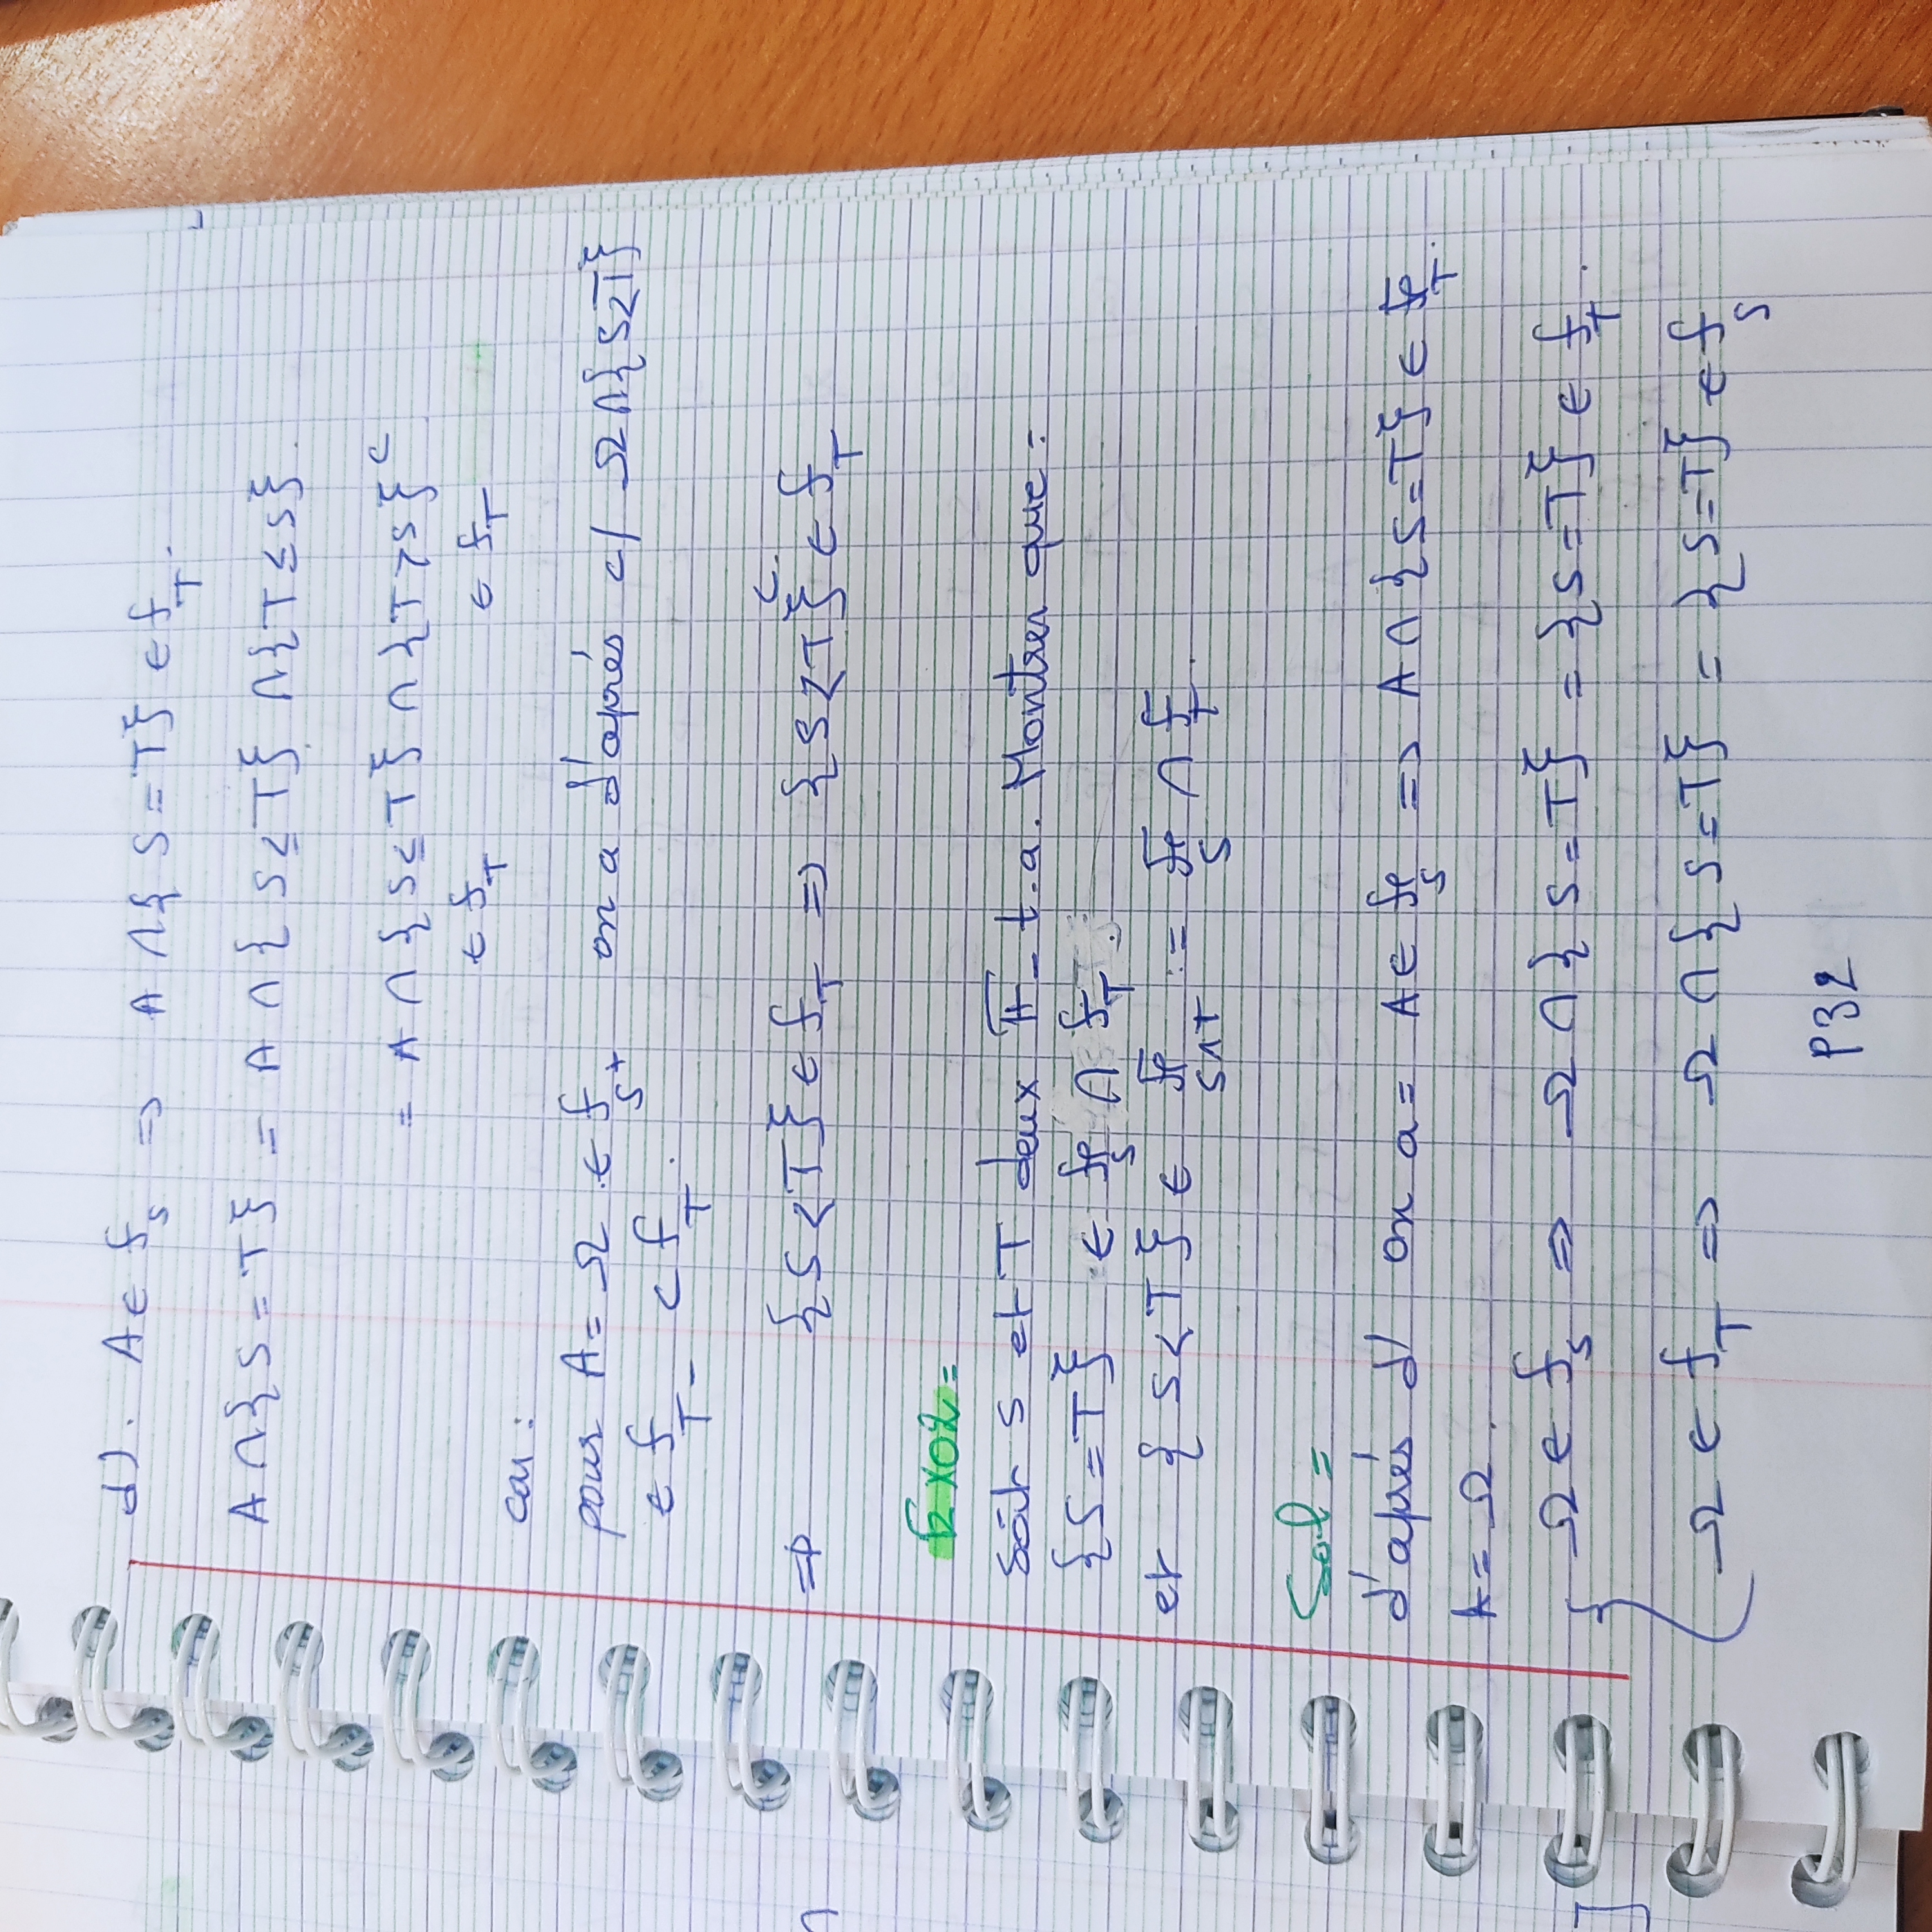 d). A ∈ f_S ⇒ A ∩ { S = T} ∈ f_T.
A ∩ { S = T} = A ∩ { S ≤ T} ∩ {T ≤ S}.
= A ∩ { S ≤ T} ∩ {T > S}^c
∈ f_T ∈ f_T
car :
pour A = Ω ∈ f_S+ on a d'aprés c/ Ω ∩ { S < T}
∈ f_T- ⊂ f_T.
⇒ { S < T} ∈ f_T ⇒ { S < T}^c ∈ f_T
Exo2 =
Soit S et T deux F - t.a. Montrer que =
{S = T} ∈ f_S ∩ f_T.
et { S < T} ∈ f_S∧T := f_S ∩ f_T.
Sol =
d'aprés d/ on a = A ∈ f_S ⇒ A ∩ { S = T} ∈ f_T.
A = Ω.
Ω ∈ f_S ⇒ Ω ∩ { S = T} = { S = T} ∈ f_T.
Ω ∈ f_T ⇒ Ω ∩ { S = T} = { S = T} ∈ f_S
P32